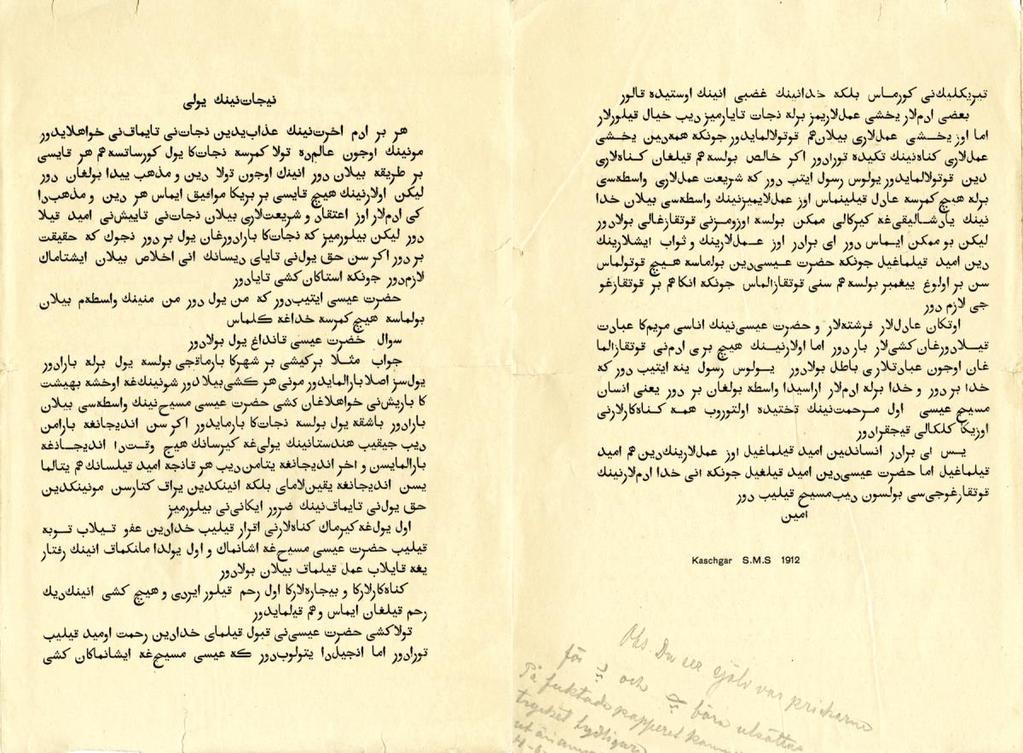 نيجات‌نينك يولی
هر بر ادم اخرت‌نينك عذاب‌يدين نجات‌نی تايماق‌نی خواهلايدور
مونينك اوجون عالم‌ده تولا كمرسه نجات‌كا يول كورساتسه‌هم هر قايسی
بر طريقه بيلان دور انينك اوجون تولا دين و مذهب پيدا بولغان دور
ليكن اولارنينك هيچ قايسی بر بريكا موافيق ايماس هر دين و مذهب‌دا
كی ادم‌لار اوز اعتقاد و شريعت‌لاری بيلان نجات‌نی تاپيش‌نی اميد قيلا
دور ليكن بيلورميز كه نجات‌كا بارادورغان يول بر دور نجوك كه حقيقت
بر دور اكر سن حق يول‌نی تاپای ديسانك انی اخلاص بيلان ايشتاماك
لازم‌دور جونكه استاكان كشی تاپادور
حضرت عيسی ايتيب‌دور كه من يول دور من منينك واسطه‌م بيلان
بولماسه هيچ كمرسه خداغه كلماس
سوال حضرت عيسی قانداغ يول بولادور
جواب مثلا بركيشی بر شهركا بارماقجی بولسه يول برله بارادور
يول‌سز اصلا بارالمايدور مونی هر كشی بيلادور شونينك‌غه اوخشه بهيشت
كا باريش‌نی خواهلاغان كشی حضرت عيسی مسيح‌نينك واسطه‌سی بيلان
بارادور باشقه يول بولسه نجات‌كا بارمايدور اكر سن انديجانغه بارامن
ديب جيقيب هندستانينك يولی‌غه كيرسانك هيچ وقت‌دا انديجانغه
بارالمايسن و اخر انديجانغه يتامن ديب هر قانجه اميد قيلسانك‌هم يتالما
يسن انديجانغه يقين‌لامای بلكه انينكدين يراق كتارسن مونينكدين
حق يول‌نی تاپماق‌نينك ضرور ايكانی‌نی بيلورميز
اول يولغه كيرماك كناه‌لارنی اقرار قيليب خدادين عفو تيلاب توبه
قيليب حضرت عيسی مسيح‌غه اشانماك و اول يولدا مانكماق انينك رفتار
يغه قايلاب عمل قيلماق بيلان بولادور
كناه‌كارلاركا و بيجاره‌لاركا اول رحم قيلور ايردی و هيچ كشی انينك‌ديك
رحم قيلغان ايماس و هم قيلمايدور
تولاكشی حضرت عيسی‌نی قبول قيلمای خدادين رحمت اوميد قيليب
تورادور اما انجيل‌دا پتولوب‌دور كه عيسی مسيح‌غه ايشانماكان كشی
تيريكليك‌نی كورماس بلكه خدانينك غضبی انينك اوستيده قالور
بعضی ادم‌لار يخشی عمل‌لاريمز برله نجات تاپارميز ديب خيال قيلورلار
اما اوز يخشی عمل‌لاری بيلان‌هم قوتولالمايدور جونكه همه‌دين يخشی
عمل‌لاری كناه‌نينك تكيده تورادور اكر خالص بولسه‌هم قيلغان كناه‌لاری
دين قوتولالمايدور پولوس رسول ايتب دور كه شريعت عمل‌لاری واسطه‌سی
برله هيچ كمرسه عادل قيلينماس اوز عمل‌لايميزنينك واسطه‌سی بيلان خدا
نينك ياد‌شاليقی‌غه كيركالی ممكن بولسه اوزومزنی قوتقازغالی بولادور
ليكن بو ممكن ايماس دور ای برادر اوز عمل‌لارينك و ثواب ايشلارينك
دين اميد قيلماغيل جونكه حضرت عيسی‌دين بولماسه هيچ قوتولماس
سن بر اولوغ پيغمبر بولسه‌هم سنی قوتقازالماس جونكه انكاهم بر قوتقازغو
جی لازم دور
اوتكان عادل‌لار فرشته‌لار و حضرت عيسی‌نينك اناسی مريم‌كا عبادت
قيلادورغان كشی‌لار بار دور اما اولارنينك هيچ بری ادم‌نی قوتقازالما
غان اوجون عبادت‌لاری باطل بولادور پولوس رسول ينه ايتيب دور كه
خدا بر دور و خدا برله ادم‌لار اراسيدا واسطه بولغان بر دور يعنی انسان
مسيح عيسی اول مرحمت‌نينك تختيده اولتوروب همه كناه‌كارلارنی
اوزيكا كلكالی قيجقرادور
پس ای برادر انساندين اميد قيلماغيل اوز عمل‌لارينك‌دين هم اميد
قيلماغيل اما حضرت عيسی‌دين اميد قيلغيل جونكه انی خدا ادم‌لارنينك
قوتقارغوجی‌سی بولسون ديب‌مسيح قيليب دور
امين
Kaschgar S.M.S 1912
Obs. Du ser själv var prickarna
för ب och پ böra utsättas
På fuktade papperet kan
trycket tydligare